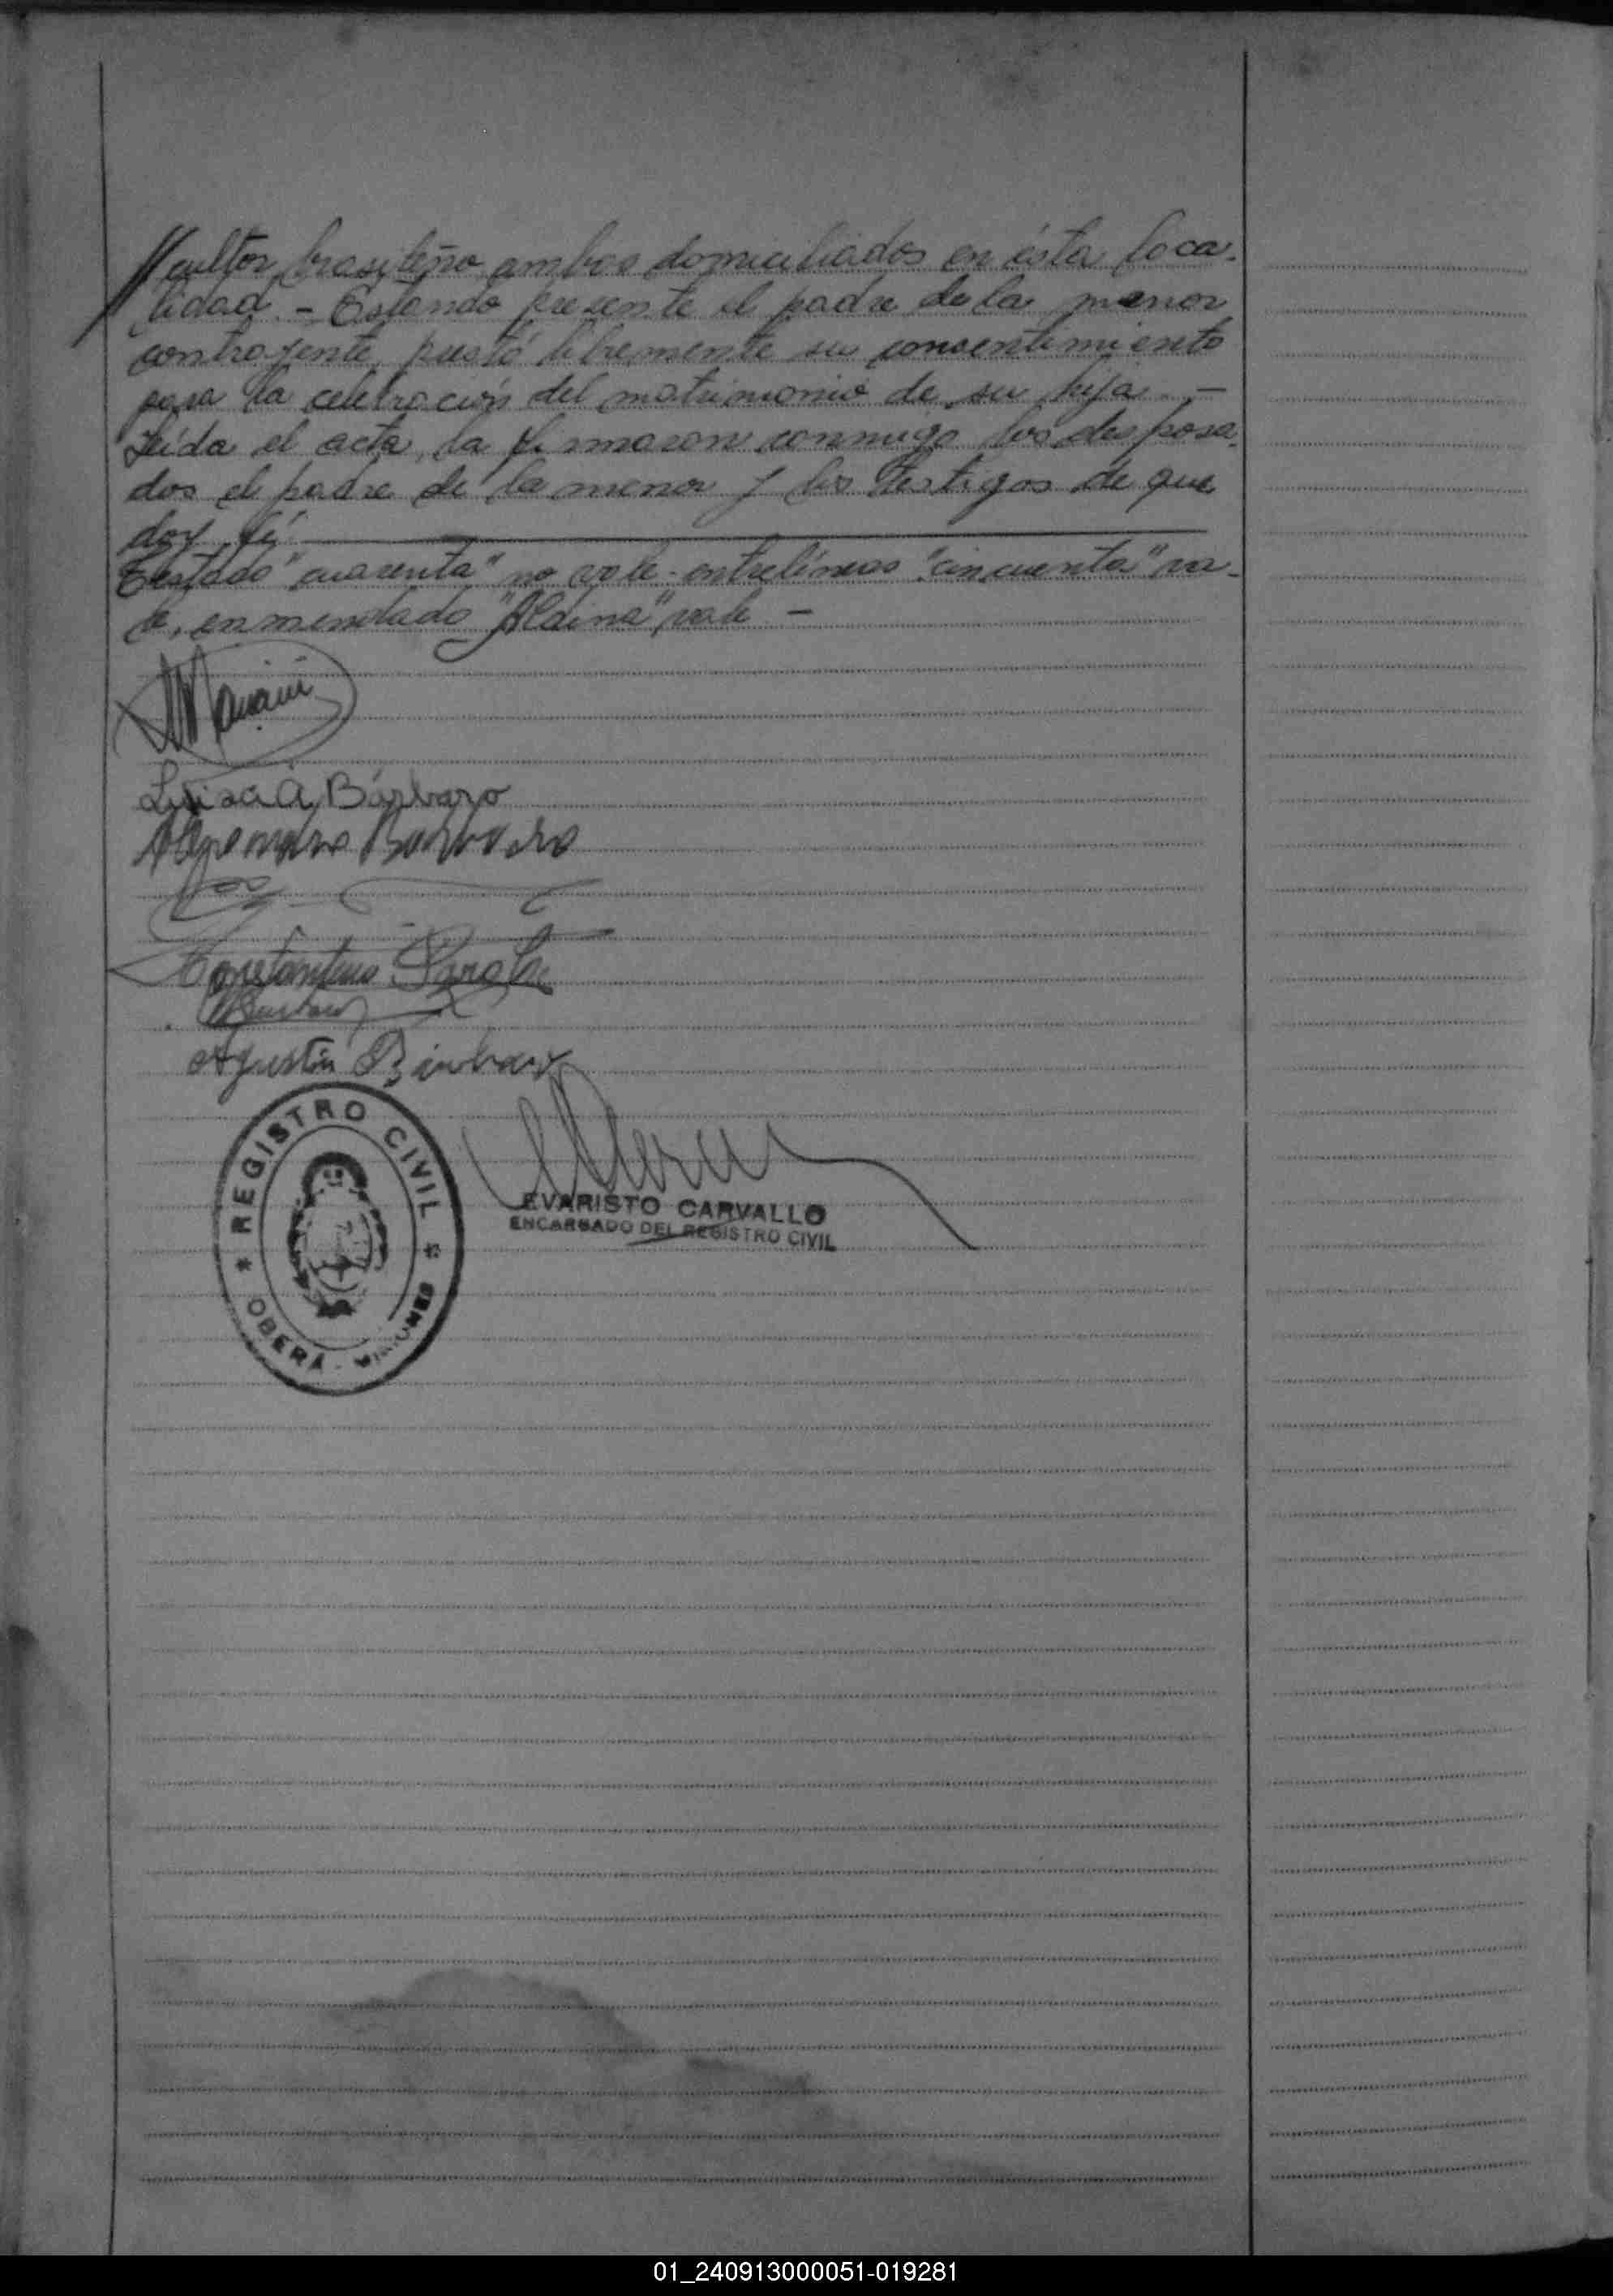 //cultor, brasileño ambos domiciliados en ésta loca-
lidad. - Estando presente el padre de la menor
contrayente, prestó libremente su consentimiento
para la celebración del matrimonio de su hija. -
Leída el acta, la firmaron conmigo los desposa-
dos el padre de la menor y los testigos de que
doy fé
Testado "cuarenta" no vale - entrelíneas "cincuenta" va-
le, enmendado "Aldina" vale -
Luisa A. Bárbaro
Agustín
REGISTRO CIVIL
OBERÁ - MISIONES
EVARISTO CARVALLO
ENCARGADO DEL REGISTRO CIVIL
01_240913000051-019281